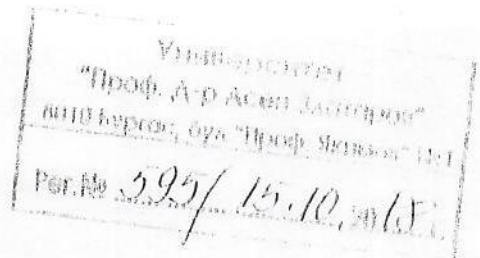 Университет
"Проф. д-р Асен Златаров"
8010 Бургас, бул. "Проф. Якимов" №1
Рег.№ 595/ 15.10. 2015 г.